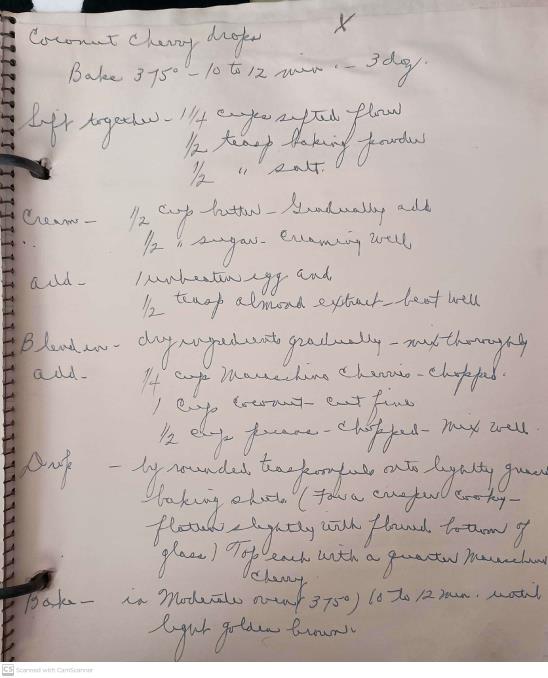 Coconut Cherry drops X
Bake 375° - 10 to 12 min. - 3 doz.
Sift together - 1 1/4 cups sifted flour
1/2 teasp baking powder
1/2 " salt.
Cream - 1/2 cup butter - Gradually add
1/2 " sugar - creaming well
add - 1 unbeaten egg and
1/2 teasp almond extract - beat well
Blend in - dry ingredients gradually - mix thoroughly
add - 1/4 cup Maraschino Cherries - chopped.
1 cup coconut - cut fine
1/2 cup pecans - chopped - mix well.
Drop - by rounded teaspoonfuls onto lightly greased
baking sheets (For a crisper cooky -
flatten slightly with floured bottom of
glass) Top each with a quarter Maraschino
Cherry.
Bake - in Moderate oven (375°) 10 to 12 min. until
light golden brown.
CS Scanned with CamScanner